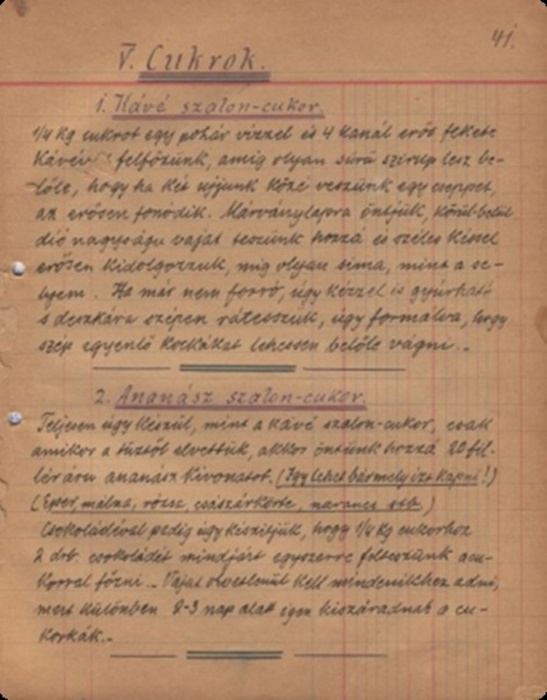 41.
V. Cukrok.
1. Kávé szalon-cukor.
1/4 kg cukrot egy pohár vizzel és 4 kanál erős fekete
kávéval felfőzünk, amig olyan sürü szirup lesz be-
lőle, hogy ha két ujjunk közé veszünk egy cseppet,
az erősen fonódik. Márványlapra öntjük, körül-belül
dió nagyságu vajat teszünk hozzá és széles késsel
erősen kidolgozzuk, mig olyan sima, mint a se-
lyem. Ha már nem forró, úgy kézzel is gyúrható
s deszkára szépen rátesszük, úgy formálva, hogy
szép egyenlő kockákat lehessen belőle vágni.-
2. Ananász szalon-cukor.
Teljesen úgy készül, mint a kávé szalon-cukor, csak
amikor a tüztől elvettük, akkor öntünk hozzá 20 fil-
lér áru ananász kivonatot. (Igy lehet bármely izt kapni!)
(Eper, málna, rózsa, császárkörte, narancs stb.)
Csokoládéval pedig úgy készitjük, hogy 1/4 kg cukorhoz
2 drb. csokoládét mindjárt egyszerre felteszünk a cu-
korral főzni.- Vajat okvetlenül kell mindenikhez adni,
mert különben 2-3 nap alatt igen kiszáradnak a cu-
korkák.-